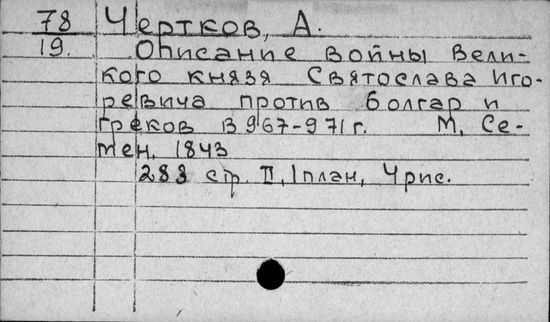 78 Чертков, А.
19. Описание войны Вели-
кого князя Святослава Иго-
ревича против болгар и
греков в 967-971 г. М, Се-
мен, 1843
288 стр. II, 1 план, 4 рис.